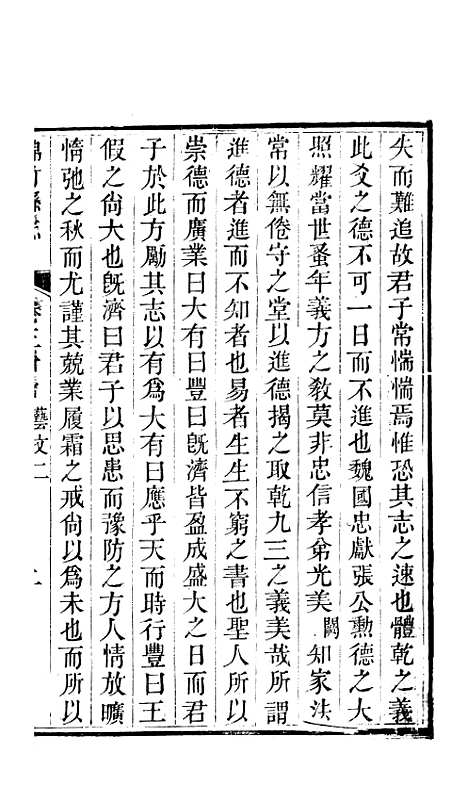 失而難追故君子常惴惴焉惟恐其志之速也體乾之義
此爻之德不可一日而不進也魏國忠獻張公勲德之大
照耀當世蚤年義方之教莫非忠信孝弟光美闕知家法
常以無倦守之堂以進德揭之取乾九三之義美哉所謂
進德者進而不知者也易者生生不窮之書也聖人所以
崇德而廣業曰大有曰豐曰旣濟皆盈成盛大之日而君
子於此方勵其志以有爲大有曰應乎天而時行豐曰王
假之尙大也旣濟曰君子以思患而豫防之方人情放曠
惰弛之秋而尤謹其兢業履霜之戒尙以爲未也而所以
竹縣志 藝文二